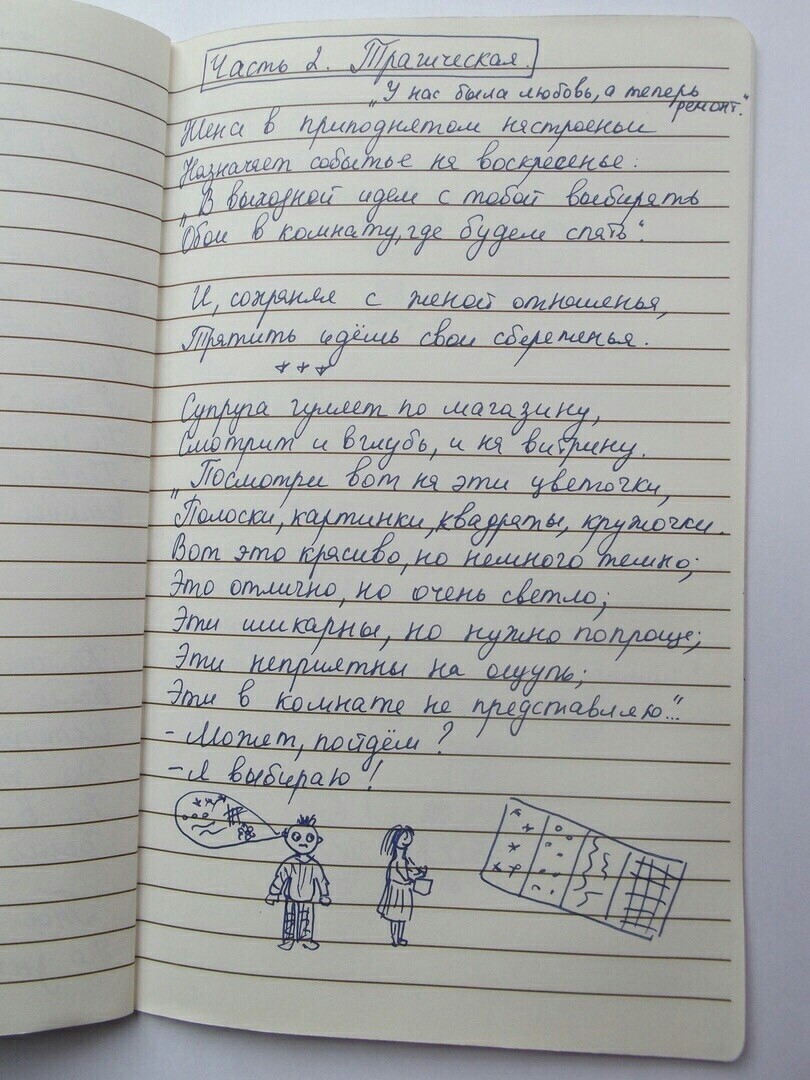 Часть 2. Трагическая.
„У нас была любовь, а теперь
ремонт."
Жена в приподнятом настроеньи
Назначает событье на воскресенье:
„В выходной идем с тобой выбирать
Обои в комнату, где будем спать".
И, сохраняя с женой отношенья,
Тратить идёшь свои сбереженья.
***
Супруга гуляет по магазину,
Смотрит и вглубь, и на витрину.
„Посмотри вот на эти цветочки,
Полоски, картинки, квадраты, кружочки.
Вот это красиво, но немного темно;
Это отлично, но очень светло;
Эти шикарны, но нужно попроще;
Эти неприятны на ощупь;
Эти в комнате не представляю..."
- Может, пойдём?
- Я выбираю!